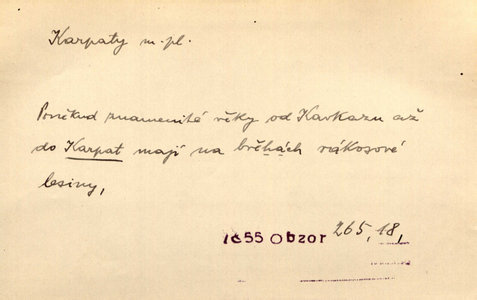 Karpaty m. pl.
Poněkud znamenité řěky od Kavkazu až
do Karpat mají na břěhách rákosové
lesiny,
1855 Obzor 265, 18,